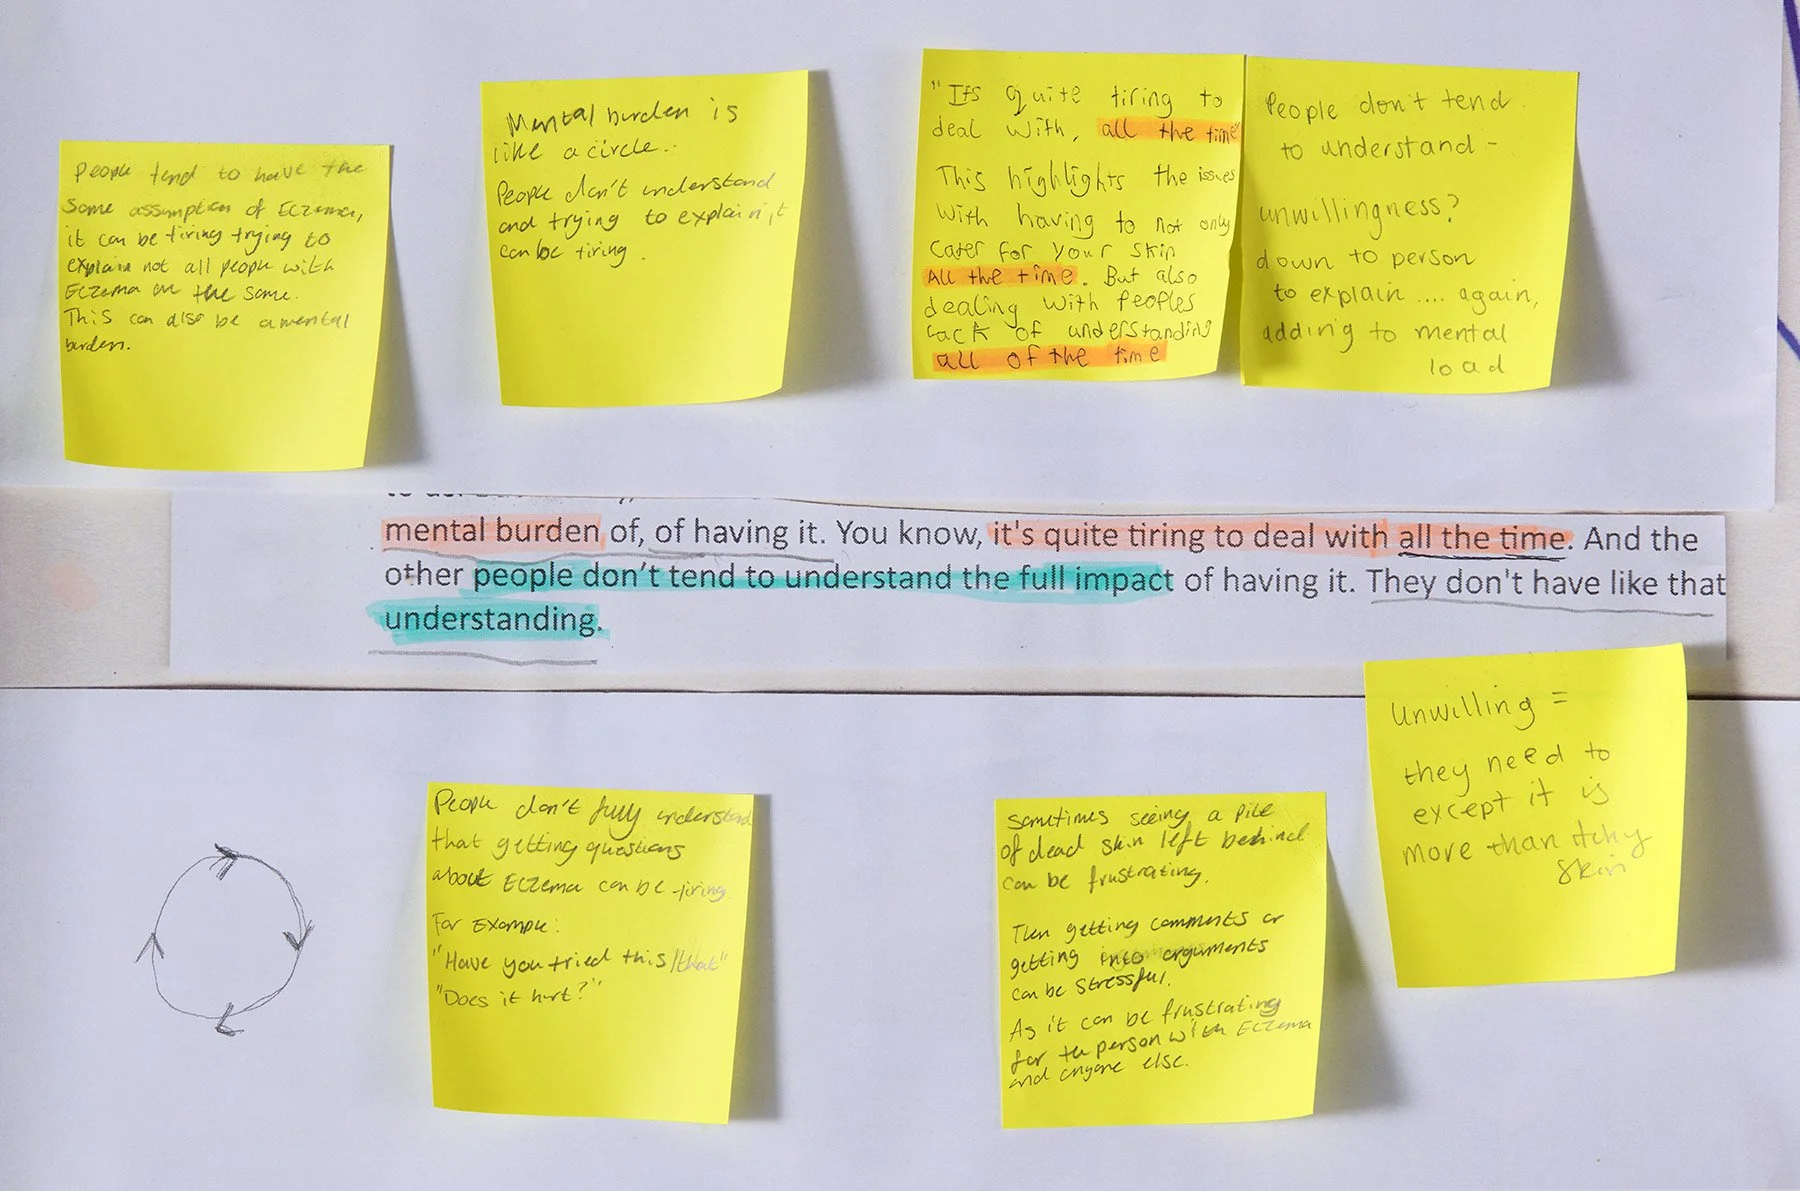 People tend to have the
same assumption of Eczema,
it can be tiring trying to
explain not all people with
Eczema are the same.
This can also be a mental
burden.
Mental burden is
like a circle..
People don't understand
and trying to explain it
can be tiring.
"Its quite tiring to
deal with, all the time"
This highlights the issues
with having to not only
cater for your skin
All the time. But also
dealing with peoples
lack of understanding
all of the time
People don't tend
to understand -
unwillingness?
down to person
to explain .... again,
adding to mental
load
mental burden of, of having it. You know, it's quite tiring to deal with all the time. And the
other people don't tend to understand the full impact of having it. They don't have like that
understanding.
Unwilling =
they need to
except it is
more than itchy
skin
People don't fully understand
that getting questions
about Eczema can be tiring.
For Example:
"Have you tried this/that"
"Does it hurt?"
Sometimes seeing a pile
of dead skin left behind
can be frustrating.
Then getting comments or
getting into arguments
can be stressful.
As it can be frustrating
for the person with Eczema
and anyone else.